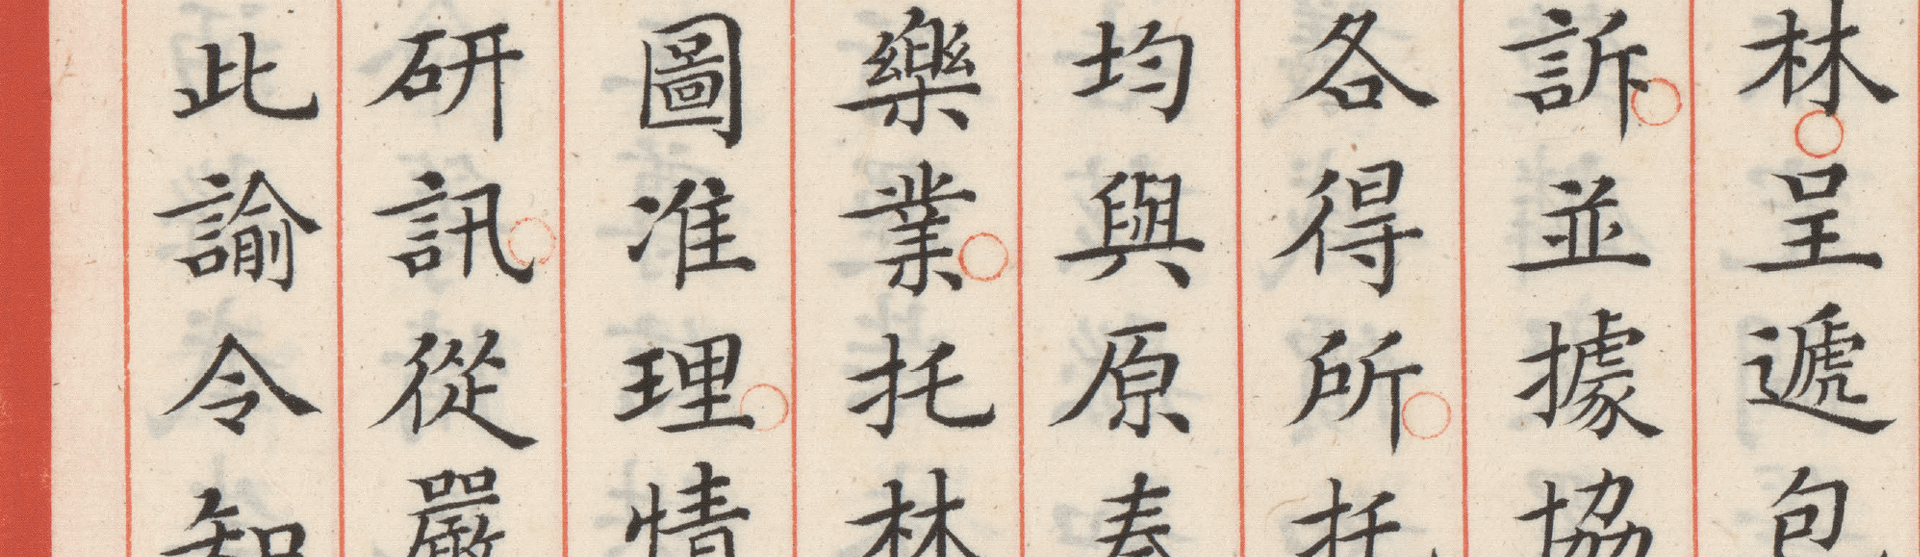 林呈遞包
訴並據協
各得所托
均與原奏
樂業托林
圖准理情
研訊從嚴
此諭令知